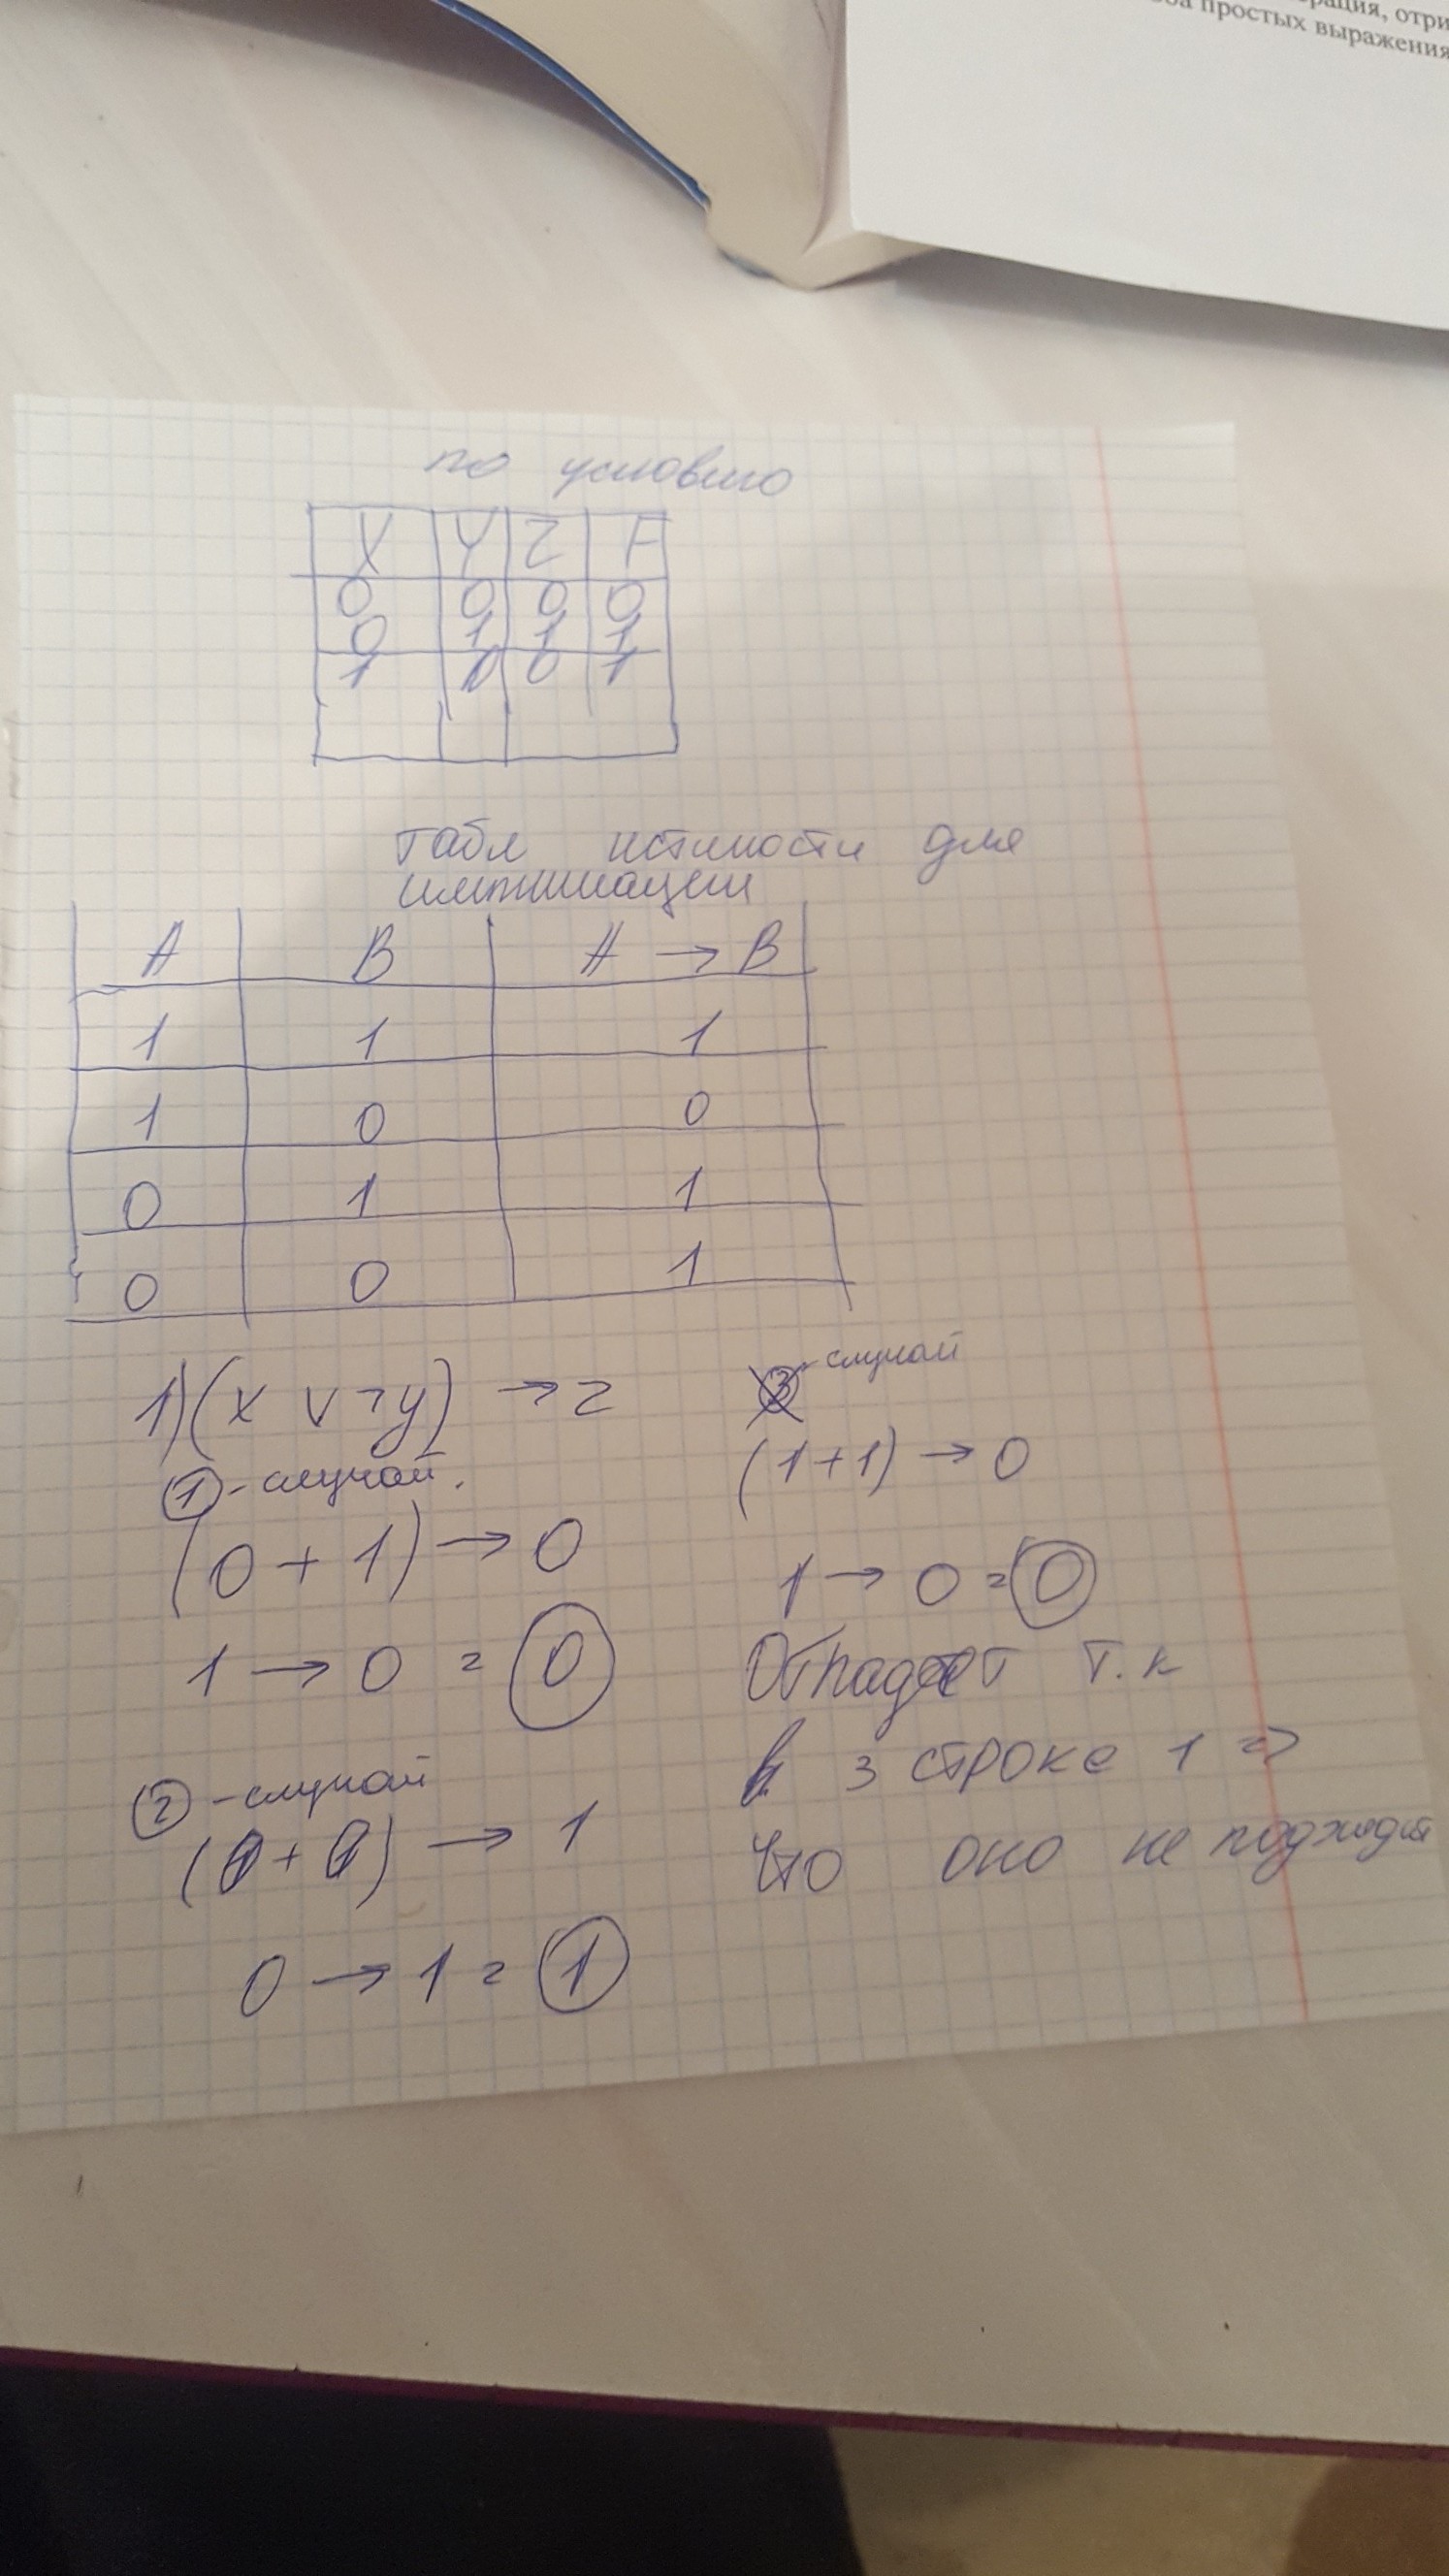 рация, отри
ба простых выражения
по условию
X Y Z F
0 0 0 0
0 1 1 1
1 0 0 1
табл истиности для
импликации
A B A → B
1 1 1
1 0 0
0 1 1
0 0 1
1) (x ∨ ¬y) → z
① - случай.
(0 + 1) → 0
1 → 0 = 0
② - случай
(0 + 0) → 1
0 → 1 = 1
③ - случай
(1 + 1) → 0
1 → 0 = 0
Отпадает т.к
в 3 строке 1 =>
что оно не подходит